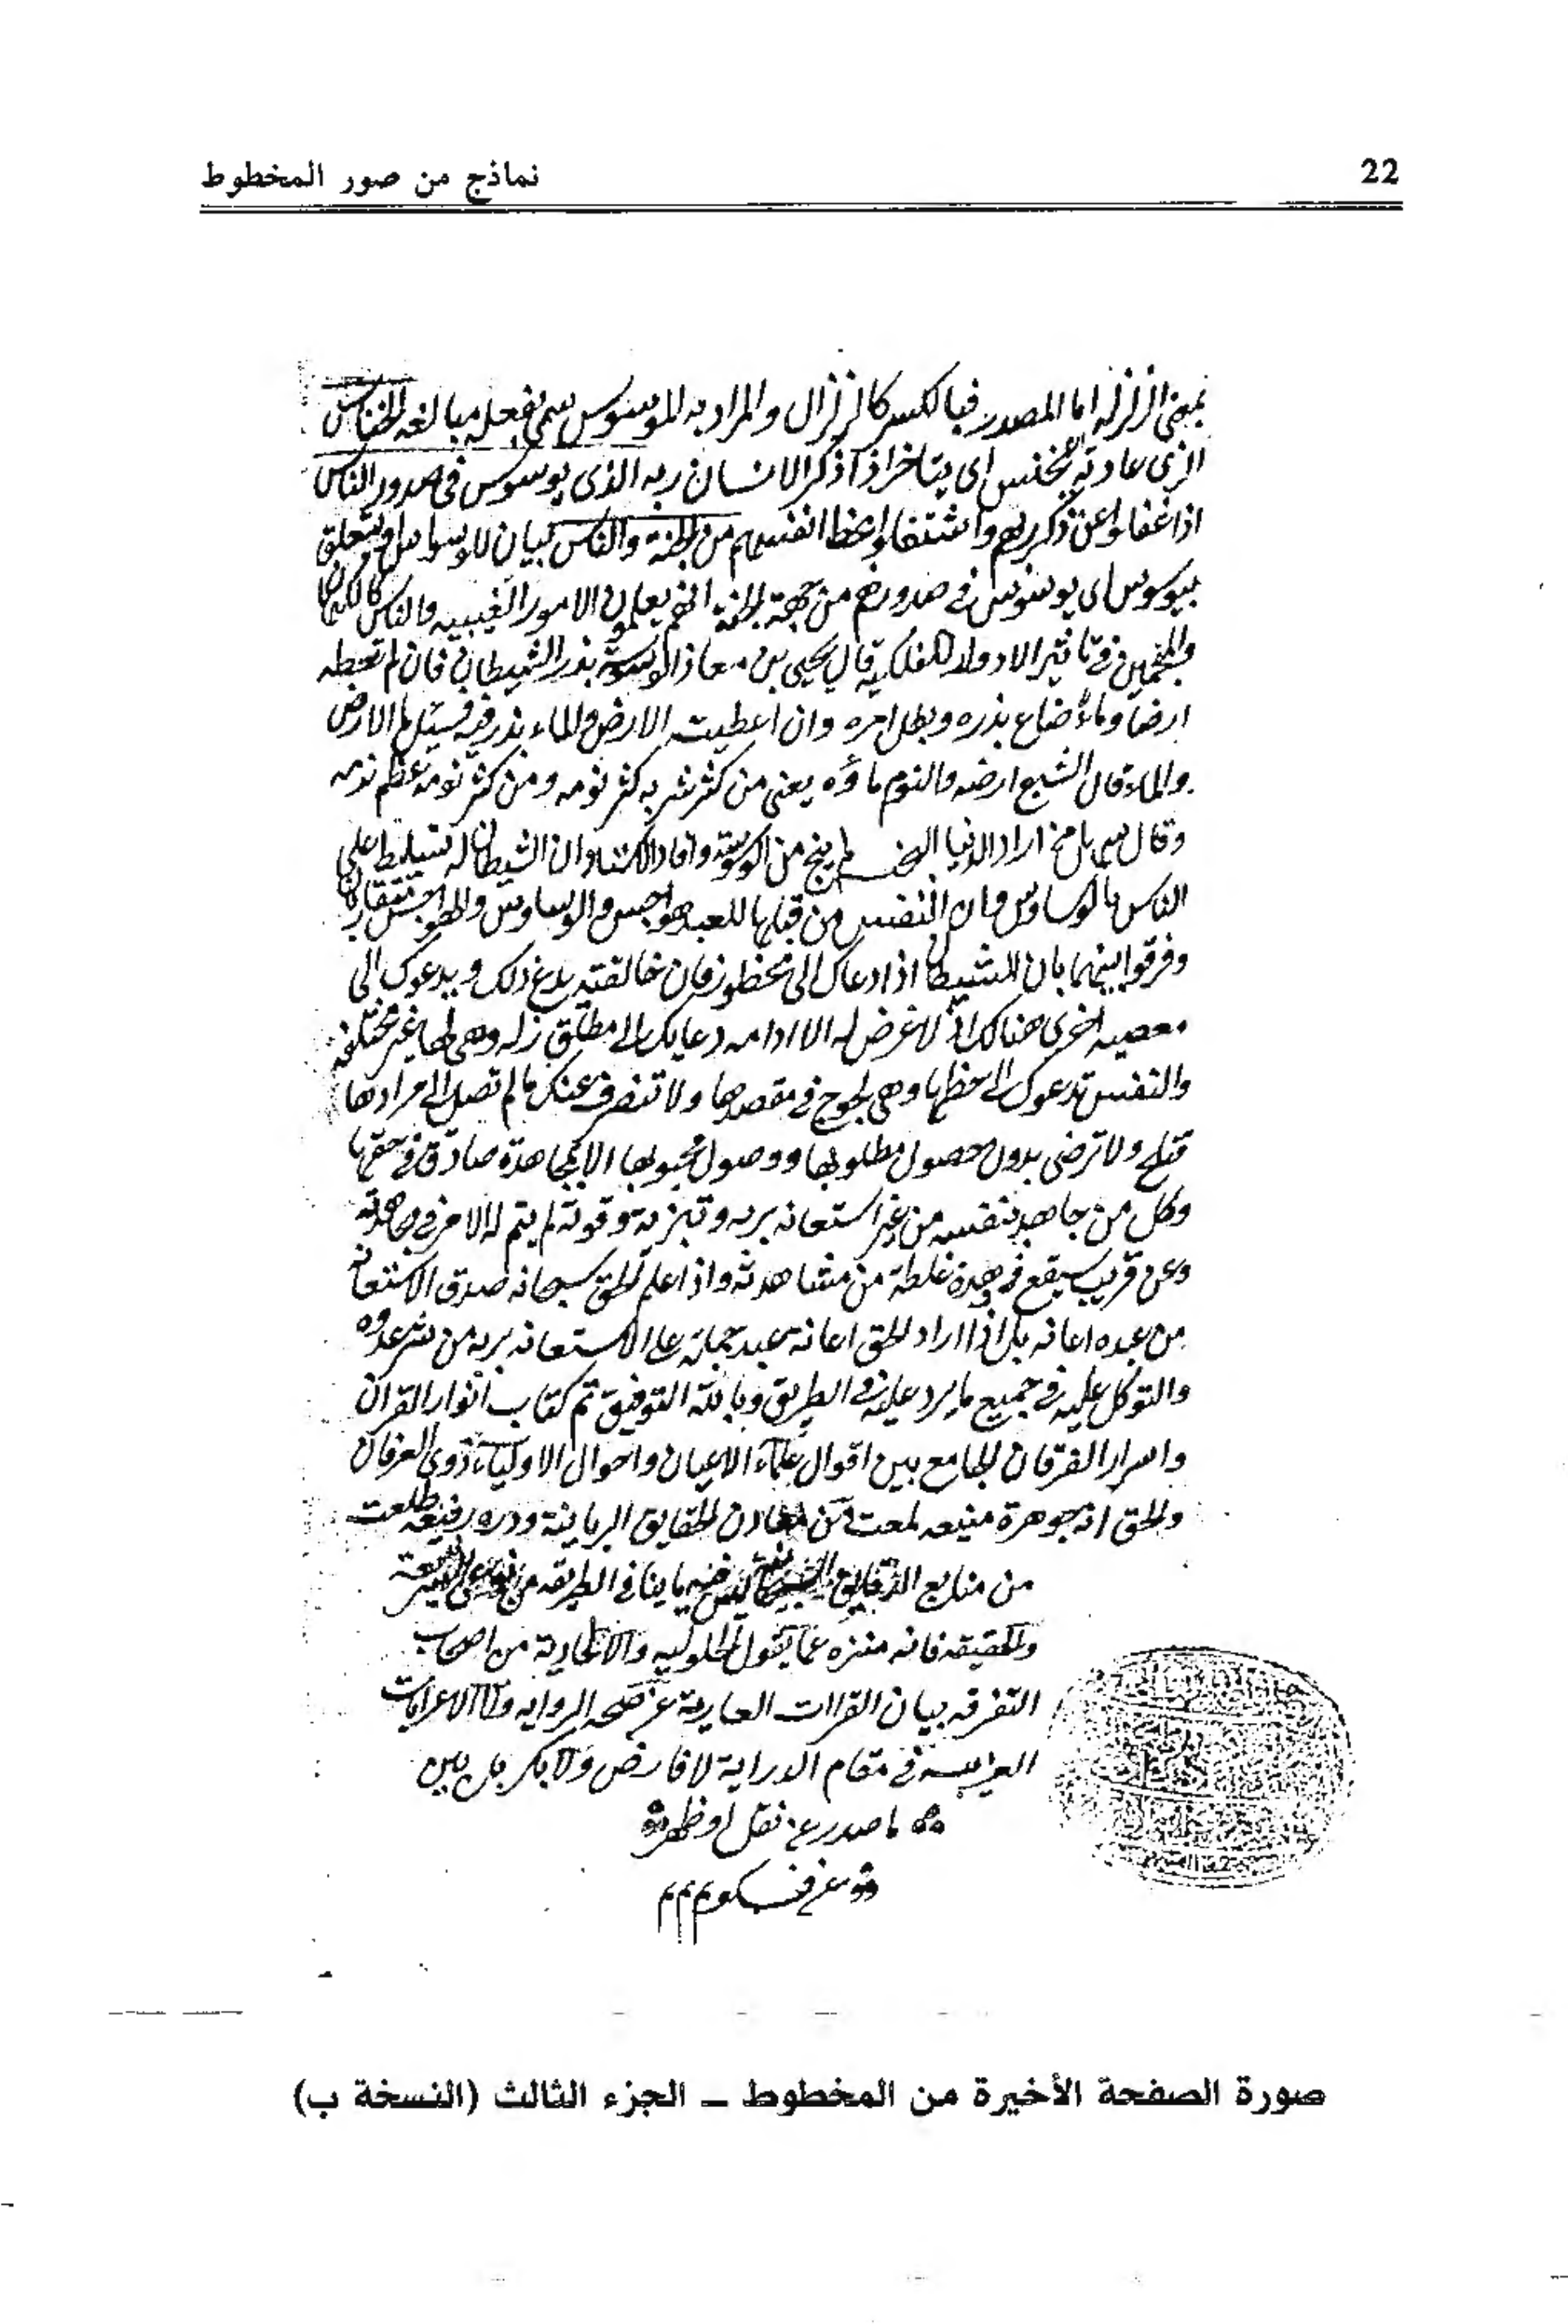 22
نماذج من صور المخطوط
بمعنى الزلزله اما المصدر فبالكسر كالزلزال والمراد به الموسوس سمى بفعله مبالغه الخناس
الذى عادته يخنس اى يتاخر اذا ذكر الانسان ربه الذى يوسوس فى صدور الناس
اذا غفلوا عن ذكر ربهم واشتغلوا بحظ انفسهم من الجنة والناس بيان للوسواس او متعلق
بيوسوس اى يوسوس فى صدورهم من جهة الجنة انهم يعلمون الامور الغيبيه والناس كالكهان
والمنجمين فى تاثير الادوار الفلكية قال يحيى بن معاذ الوسوسة بذر الشيطان فان لم تعطه
ارضا وماء ضاع بذره وبطل امره وان اعطيت الارض والماء بذر فيه فسئل ما الارض
والماء قال الشبع ارضه والنوم ماؤه يعنى من كثر شربه كثر نومه ومن كثر نومه عظم ندمه
وقال سهل من اراد الدنيا لم ينج من الوسوسة وافاد الاستاذ ان الشيطان له تسليط على
الناس بالوساوس وان النفس من قبلها للعبد هواجس والوساوس والهواجس
وفرقوا بينهما بان الشيطان اذا دعاك الى محظور فان خالفته يدع ذلك ويدعوك الى
معصيه اخرى هنالك اذ لا غرض له الا ادامه دعايك الى مطلق زله وهى لها غير مختلفه
والنفس تدعوك الى حظها وهى لجوج فى مقصدها ولا تنصرف عنك ما لم تصل الى مرادها
ولا ترضى بدون حصول مطلوبها ووصول محبوبها الا بمجاهدة صادق فى حقها
وكل من جاهد نفسه من غير استعانه بربه وقوته لم يتم له الامر فى مجاهدته
وعن قريب سيقع فى وهدة غلطة من مشاهدته واذا علم الحق سبحانه صدق الاستعانه
من عبده اعانه بل اذا اراد الحق اعانة عبد حمله على الاستعانه بربه من شر عدوه
والتوكل عليه فى جميع ما يرد عليه فى الطريق وبالله التوفيق تم كتاب انوار القران
واسرار الفرقان الجامع بين اقوال علماء الاعيان واحوال الاولياء ذوى العرفان
والحق انه جوهرة منيعه لمعت من معادن الحقايق الربانية ودره رفيعه طلعت
من منابع الدقايق ليس فيه ما ينافى الطريقه من الشريعة
والحقيقه فانه منزه عما يقول الحلوليه والاتحادية من اصحاب
التفرقه بيان القراات العارية عن صحه الروايه ولا الاعرابات
الغرابيه فى مقام الدراية لا فارض ولا بكر بل بين
ما صدر عن نقل او ظهر
عن فكر
صورة الصفحة الأخيرة من المخطوط ــ الجزء الثالث (النسخة ب)